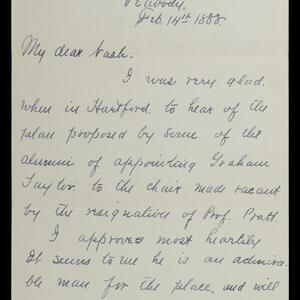 Peabody,
Feb. 14th 1888.
My dear Nash.
I was very glad.
when in Hartford. to hear of the
plan proposed by some of the
alumni of appointing Graham
Taylor to the chair made vacant
by the resignation of Prof. Pratt.
I approve most heartily
It seems to me he is an admira-
ble man for the place, and will